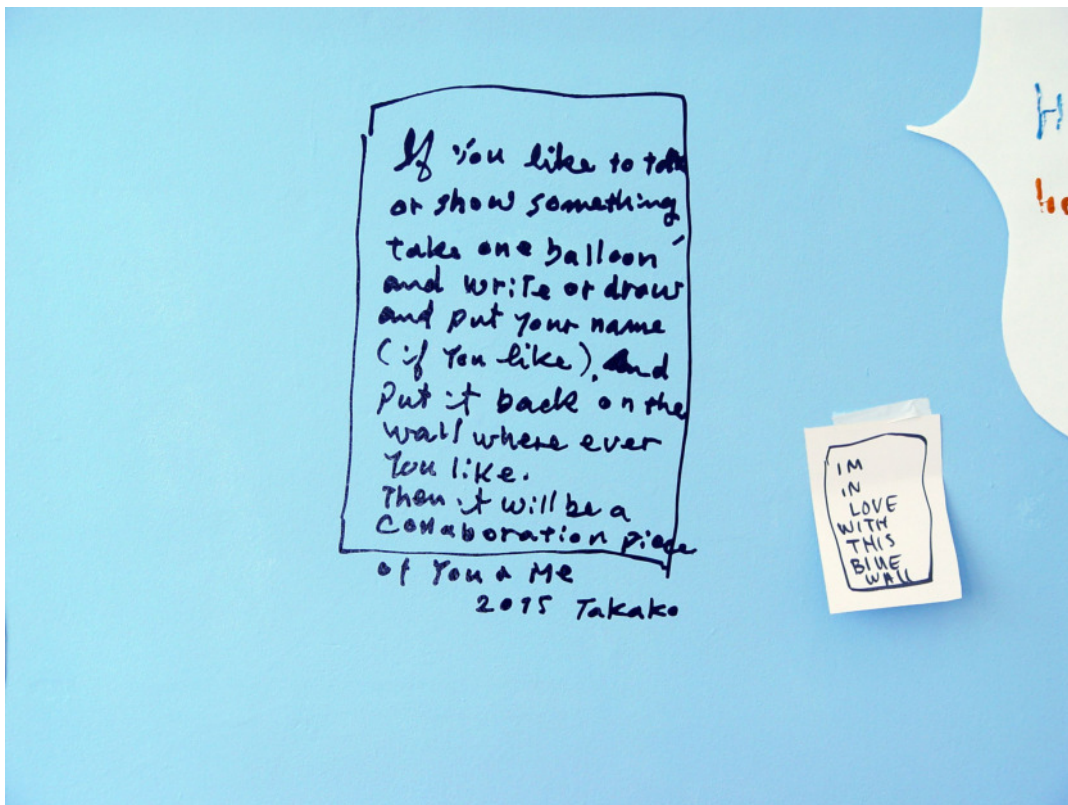 If you like to talk
or show something
take one balloon
and write or draw
and put your name
(if you like). And
put it back on the
wall where ever
you like.
Then it will be a
collaboration piece
of You & Me
2015 Takako
IM
IN
LOVE
WITH
THIS
BLUE
WALL
H